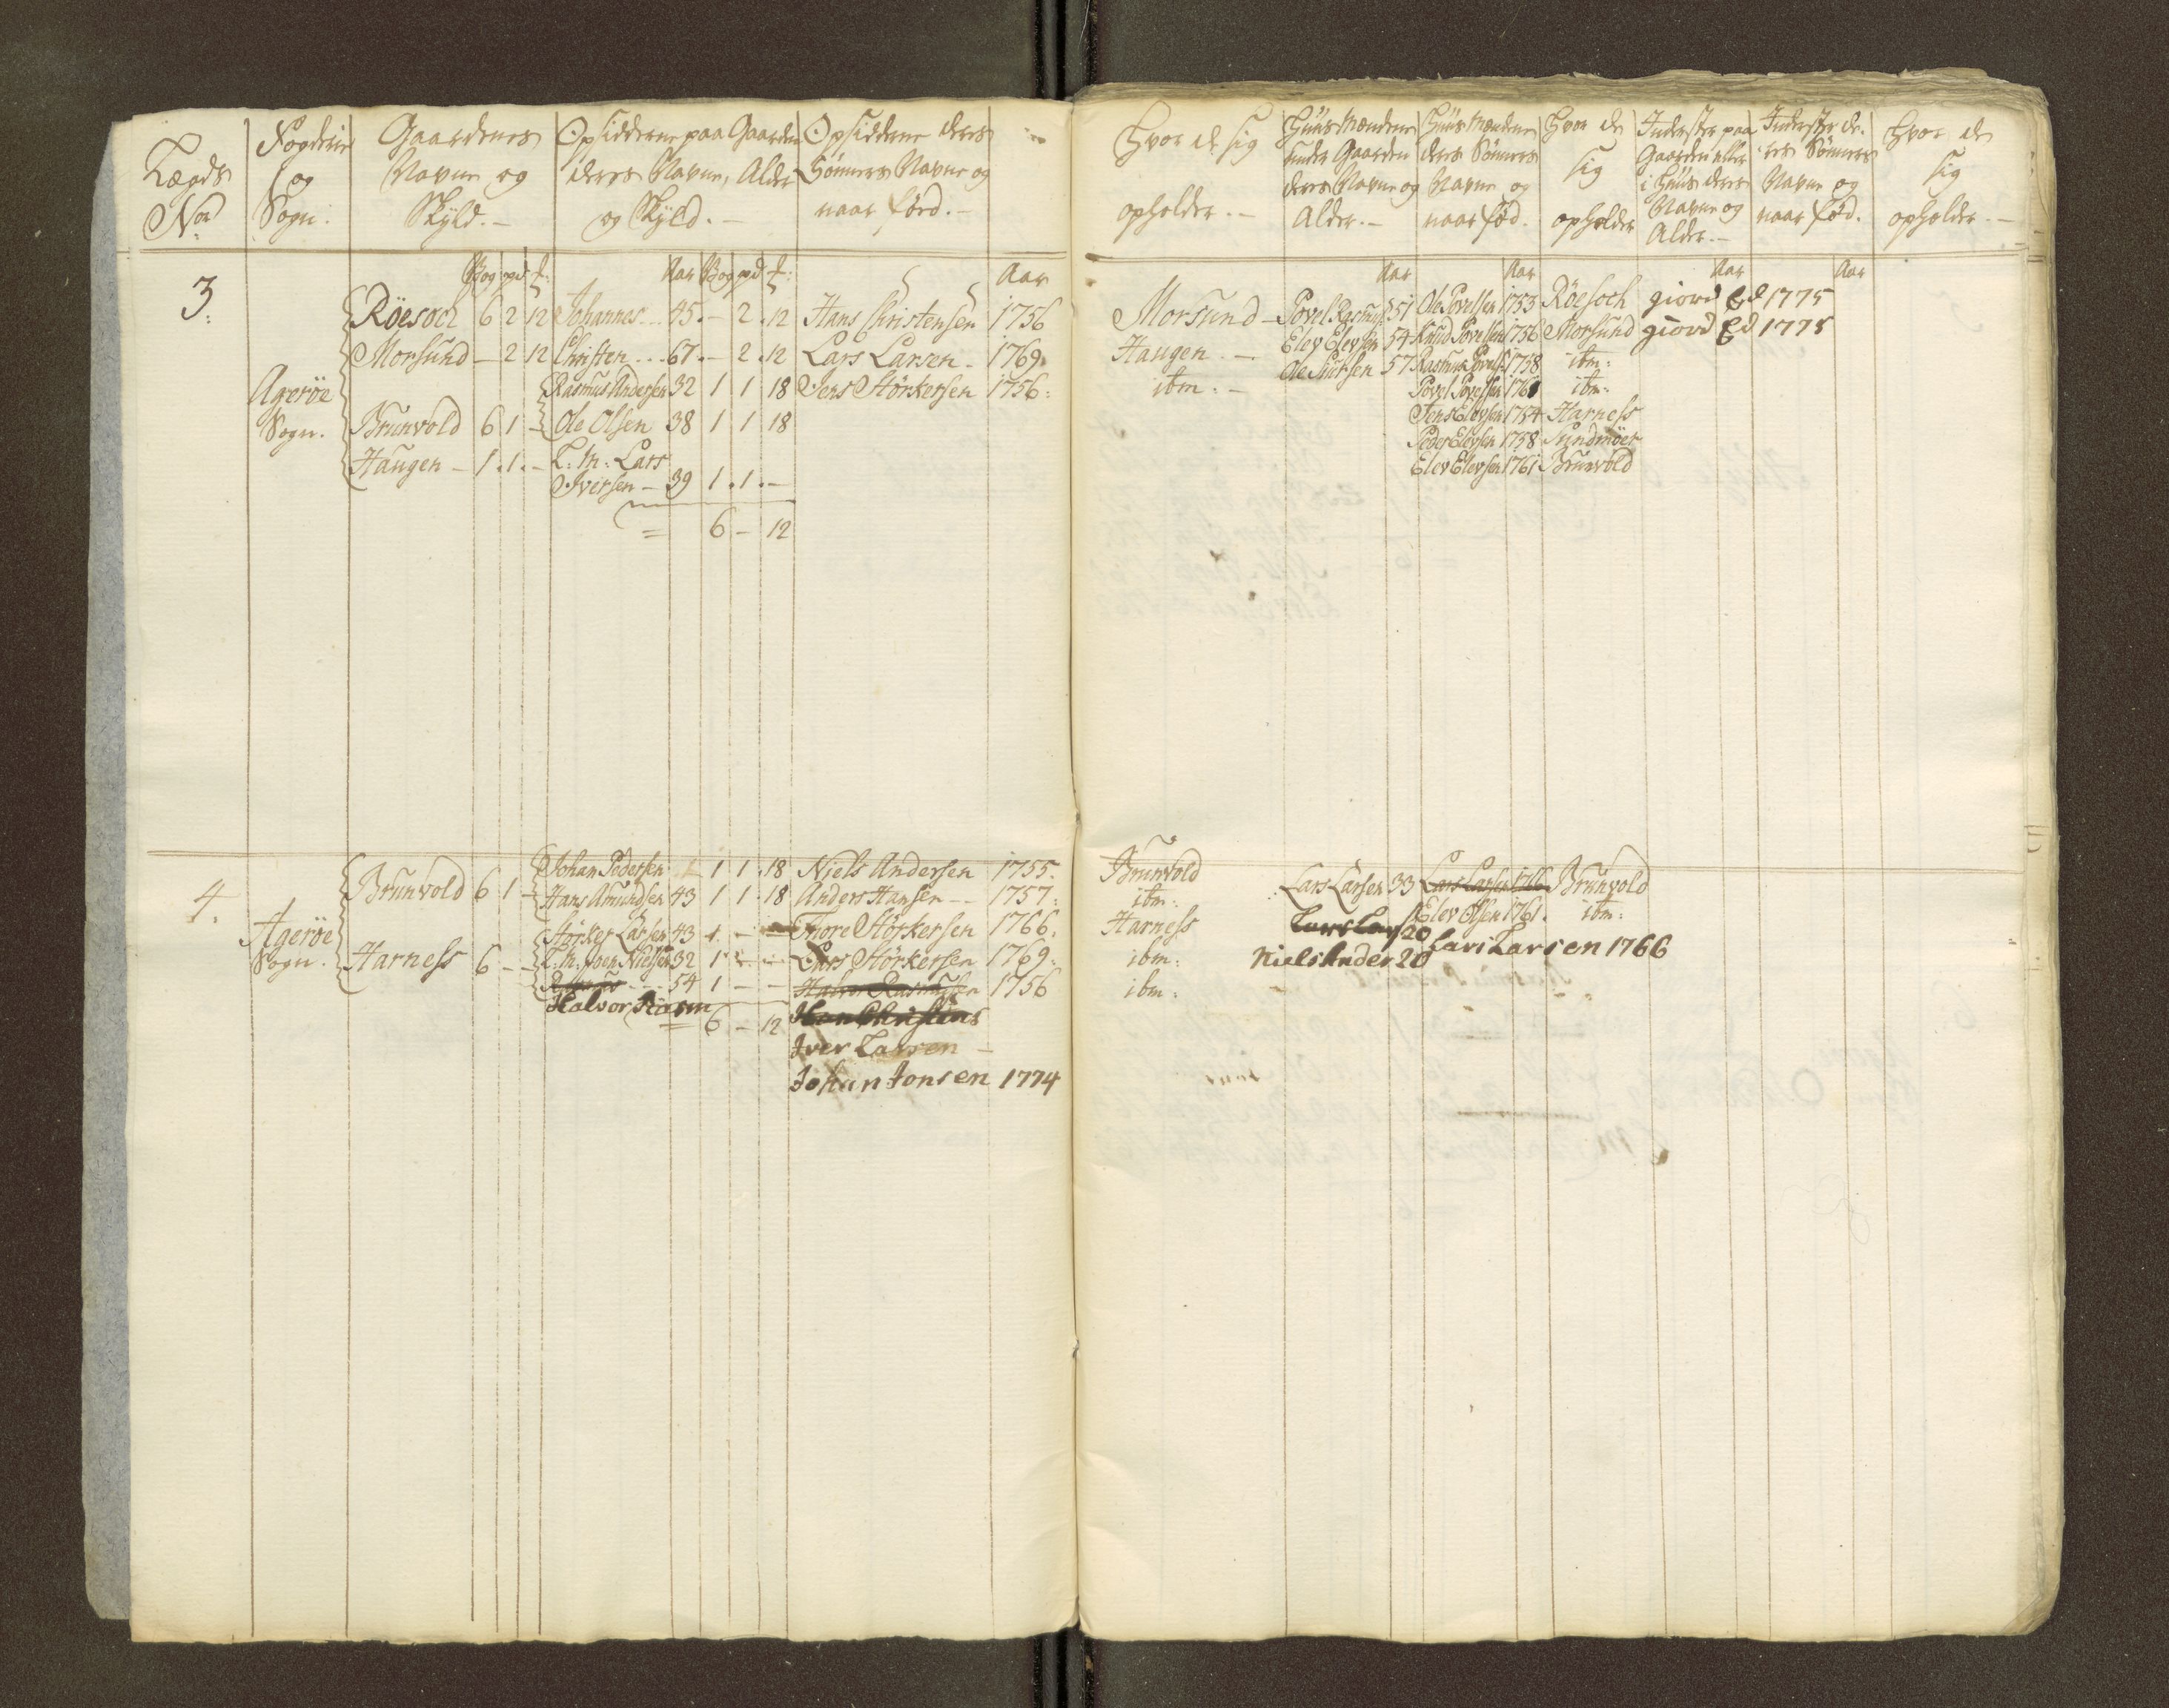 Lægds
No
Fogderie
og
Sogn.
Gaardenes
Navne og
Skyld.-
Opsidderne paa Gaarden
deres Navne, Alder
og Skyld.-
Opsidderne deres
Sønners Navne og
naar förd.-
Hvor de sig
opholder.-
Huus Mændene
under Gaarden
deres Navne og
Alder.-
Huus Mændene
deres Sønners
Navne og
naar föd.
Hvor de
sig
opholder
Inderster paa
Gaarden eller
i Huus deres
Navne og
Alder.-
Inderster de-
res Sønners
Navne og
naar föd.
Hvor de
sig
opholder.-
3.
Vog pd
Aar Vog pd
Aar
Aar
Aar
Aar
Aar
Ageröe
Sogn.
Röesoch 6 2 12 Johannes 45.- 2.12 Hans Christensen 1756
Morsund - 2 12 Christen 67.- 2.12 Lars Larsen - 1769.
Rasmus Andersen 32 1 1 18 Jens Störkersen 1756.
Brunvold 6 1 - Ole Olsen 38 1 1 18
Haugen - 1.1.- L: M: Lars
Iversen - 39 1.1.-
= 6 - 12
Morsund -
Haugen -
ibm: -
Povel Rasmus 51 Ole Povelsen 1753 Röesoch giord Ed 1775
Elev Elevsen 54 Knud Povelsen 1756 Morsund giord Ed 1775
57 Rasmus Povels 1758 ibm:
Povel Povelsen 1760 ibm:
Jens Elevsen 1754 Harness
Peder Elevsen 1758 Sundmöer
Elev Elevsen 1761 Brunvold
4.
Ageröe
Sogn.
Brunvold 6 1 - Johan Pedersen 1 1.18 Niels Andersen 1755.
Hans Amundsen 43 1 1.18 Anders Hansen -- 1757.
Störker Larsen 43 1. - - Thore Störkersen 1766.
Harness 6 - - L. M. Iver Nielsen 32 1 Lars Störkersen 1769.
54 1 - - Halvor Rasmusen 1756
Halvor Rasm
= 6 - 12 Hans Christens
Iver Larsen -
Johan Jonsen 1774
Brunvold
ibm:
Harness
ibm:
ibm:
Lars Larsen 33 Lars Larsen 1766 Brunvold
Elev Olsen 1761. ibm:
Lars Lars 20
Niels Ander 20 Lars Larsen 1766